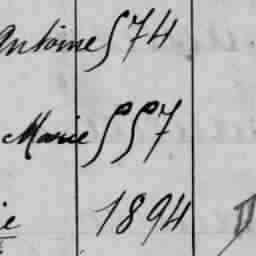 Antoine 574
Marie 557
ie 1894